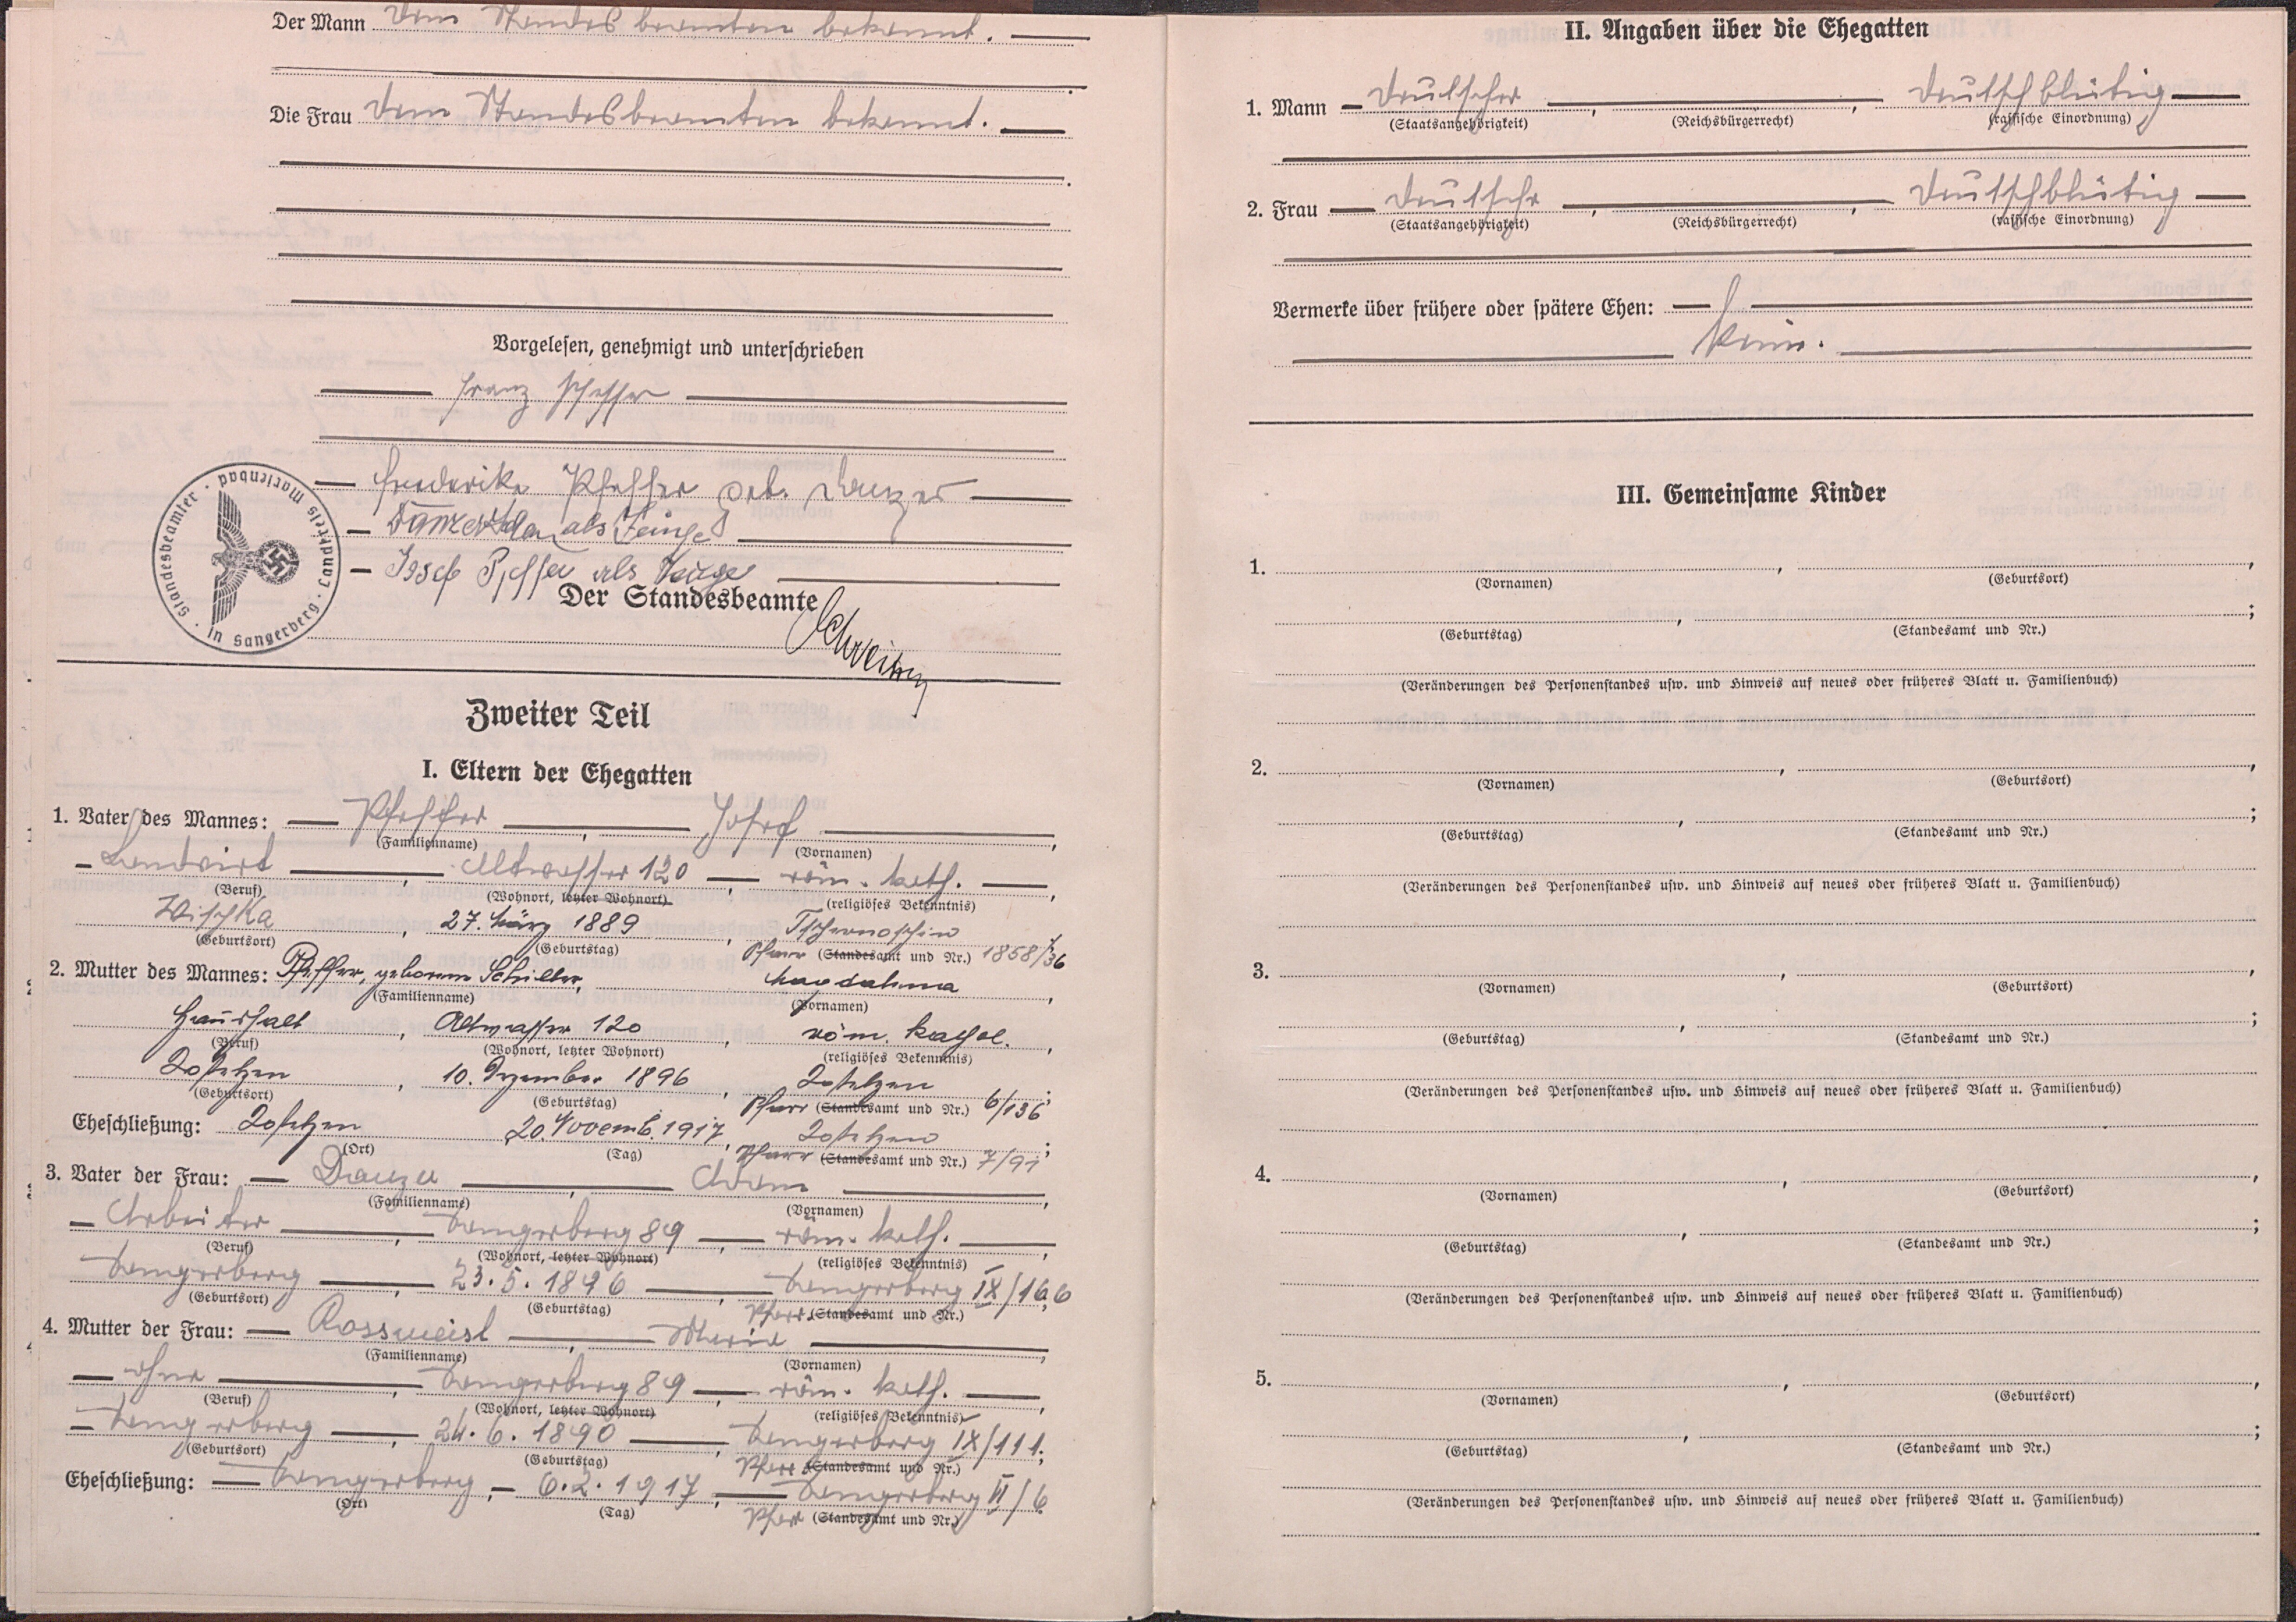 Der Mann dem Standesbeamten bekannt.
Die Frau dem Standesbeamten bekannt.
Vorgelesen, genehmigt und unterschrieben
Franz Pfeffer
Friederike Pfeffer geb. Danzer
Danzer Adam als Zeuge
Josef Pfeffer als Zeuge
Der Standesbeamte
Standesbeamter · in Sangerberg · Landkreis Marienbad ·
Zweiter Teil
I. Eltern der Ehegatten
1. Vater des Mannes: Pfeffer, Josef,
(Familienname) (Vornamen)
Landwirt, Altwasser 120, röm. kath.,
(Beruf) (Wohnort, letzter Wohnort) (religiöses Bekenntnis)
Wischka, 27. März 1889, Tschernoschin
(Geburtsort) (Geburtstag) Pfarr (Standesamt und Nr.) 1858/36
2. Mutter des Mannes: Pfeffer, geborene Schiller, Magdalena,
(Familienname) (Vornamen)
Haushalt, Altwasser 120, röm. kathol.,
(Beruf) (Wohnort, letzter Wohnort) (religiöses Bekenntnis)
10. Dezember 1896,
(Geburtsort) (Geburtstag) Pfarr (Standesamt und Nr.) 6/136;
Eheschließung: 20. Novemb. 1917,
(Ort) (Tag) Pfarr (Standesamt und Nr.) 7/91;
3. Vater der Frau: Danzer, Adam,
(Familienname) (Vornamen)
Arbeiter, Sangerberg 89, röm. kath.,
(Beruf) (Wohnort, letzter Wohnort) (religiöses Bekenntnis)
Sangerberg, 23. 5. 1896, Sangerberg IX/166
(Geburtsort) (Geburtstag) Pfarr (Standesamt und Nr.)
4. Mutter der Frau: Rossmeisl, Maria,
(Familienname) (Vornamen)
ohne, Sangerberg 89, röm. kath.,
(Beruf) (Wohnort, letzter Wohnort) (religiöses Bekenntnis)
Sangerberg, 24. 6. 1890, Sangerberg IX/111;
(Geburtsort) (Geburtstag) Pfarr (Standesamt und Nr.)
Eheschließung: Sangerberg, 6. 2. 1917, Sangerberg VI/6
(Ort) (Tag) Pfarr (Standesamt und Nr.)
II. Angaben über die Ehegatten
1. Mann Deutscher, , deutschblütig
(Staatsangehörigkeit) (Reichsbürgerrecht) (rassische Einordnung)
2. Frau Deutsche, , deutschblütig
(Staatsangehörigkeit) (Reichsbürgerrecht) (rassische Einordnung)
Vermerke über frühere oder spätere Ehen:
Keine.
III. Gemeinsame Kinder
1. , ,
(Vornamen) (Geburtsort)
, ;
(Geburtstag) (Standesamt und Nr.)
(Veränderungen des Personenstandes usw. und Hinweis auf neues oder früheres Blatt u. Familienbuch)
2. , ,
(Vornamen) (Geburtsort)
, ;
(Geburtstag) (Standesamt und Nr.)
(Veränderungen des Personenstandes usw. und Hinweis auf neues oder früheres Blatt u. Familienbuch)
3. , ,
(Vornamen) (Geburtsort)
, ;
(Geburtstag) (Standesamt und Nr.)
(Veränderungen des Personenstandes usw. und Hinweis auf neues oder früheres Blatt u. Familienbuch)
4. , ,
(Vornamen) (Geburtsort)
, ;
(Geburtstag) (Standesamt und Nr.)
(Veränderungen des Personenstandes usw. und Hinweis auf neues oder früheres Blatt u. Familienbuch)
5. , ,
(Vornamen) (Geburtsort)
, ;
(Geburtstag) (Standesamt und Nr.)
(Veränderungen des Personenstandes usw. und Hinweis auf neues oder früheres Blatt u. Familienbuch)